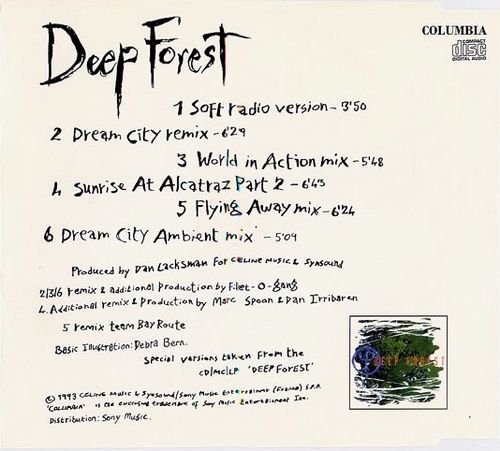 Deep Forest
COLUMBIA
COMPACT
disc
DIGITAL AUDIO
1 Soft radio version - 3'50
2 Dream City remix - 6'29
3 World in Action mix - 5'48
4 Sunrise At Alcatraz Part 2 - 6'43
5 Flying Away mix - 6'24
6 Dream City Ambient mix - 5'09
Produced by Dan Lacksman for CELINE MUSIC & SYNSOUND
2/3/6 remix & additional production by Filet-O-gang
4. Additional remix & Production by Marc Spoon & Dan Irribaren
5 remix team Bay Route
Basic Illustration: Debra Bern.
Special versions taken from the
CD/MC/LP 'DEEP FOREST'
DEEP FOREST
© 1993 CELINE MUSIC & Synsound/Sony Music Entertainment (France) S.A.
'COLUMBIA' is the exclusive trademark of Sony Music Entertainment Inc.
Distribution: Sony Music.